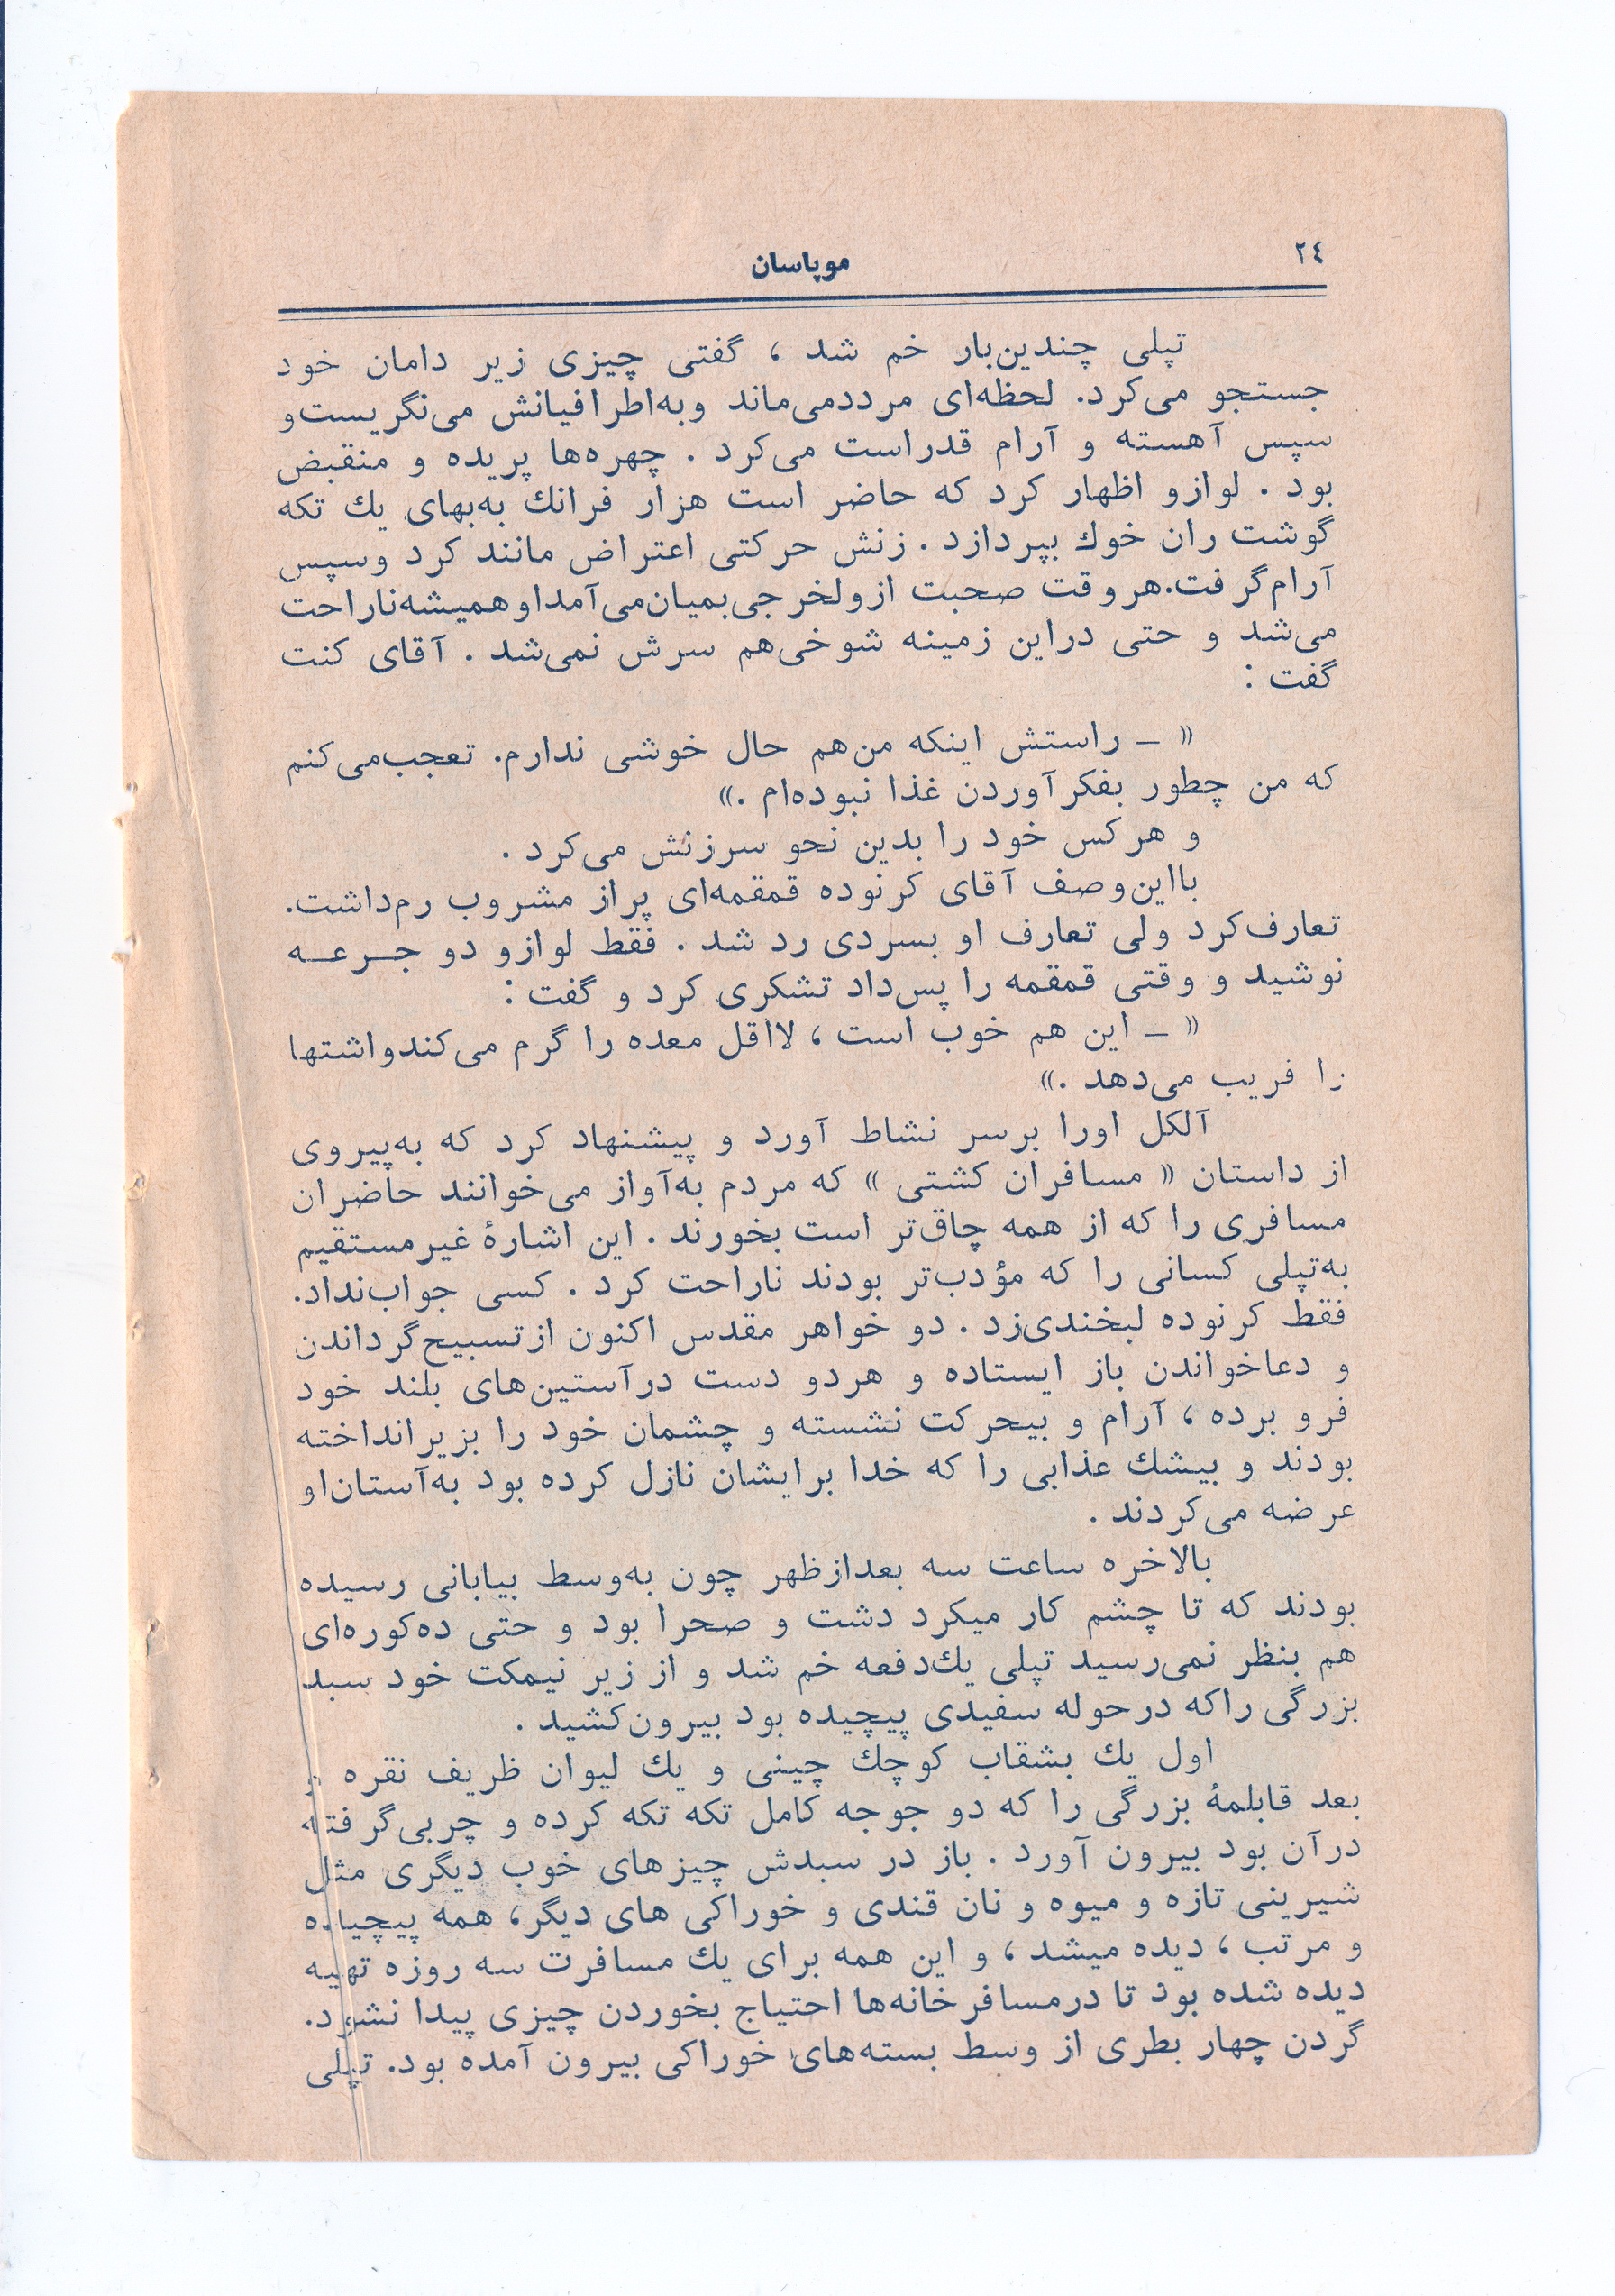 ۲٤
موپاسان
تپلی چندین‌بار خم شد ، گفتی چیزی زیر دامان خود
جستجو می‌کرد. لحظه‌ای مرددمی‌ماند وبه‌اطرافیانش می‌نگریست‌و
سپس آهسته و آرام قدراست می‌کرد . چهره‌ها پریده و منقبض
بود . لوازو اظهار کرد که حاضر است هزار فرانك به‌بهای یك تکه
گوشت ران خوك بپردازد . زنش حرکتی اعتراض مانند کرد وسپس
آرام‌گرفت.هروقت صحبت ازولخرجی‌بمیان‌می‌آمداوهمیشه‌ناراحت
می‌شد و حتی دراین زمینه شوخی‌هم سرش نمی‌شد . آقای کنت
گفت :
« ـ راستش اینکه من‌هم حال خوشی ندارم. تعجب‌می‌کنم
که من چطور بفکرآوردن غذا نبوده‌ام .»
و هرکس خود را بدین نحو سرزنش می‌کرد .
بااین‌وصف آقای کرنوده قمقمه‌ای پراز مشروب رم‌داشت.
تعارف‌کرد ولی تعارف او بسردی رد شد . فقط لوازو دو جـرعـه
نوشید و وقتی قمقمه را پس‌داد تشکری کرد و گفت :
« ـ این هم خوب است ، لااقل معده را گرم می‌کندواشتها
را فریب می‌دهد .»
آلکل اورا برسر نشاط آورد و پیشنهاد کرد که به‌پیروی
از داستان « مسافران کشتی » که مردم به‌آواز می‌خوانند حاضران
مسافری را که از همه چاق‌تر است بخورند . این اشارهٔ غیرمستقیم
به‌تپلی کسانی را که مؤدب‌تر بودند ناراحت کرد . کسی جواب‌نداد.
فقط کرنوده لبخندی‌زد . دو خواهر مقدس اکنون ازتسبیح‌گرداندن
و دعاخواندن باز ایستاده و هردو دست درآستین‌های بلند خود
فرو برده ، آرام و بیحرکت نشسته و چشمان خود را بزیرانداخته
بودند و بیشك عذابی را که خدا برایشان نازل کرده بود به‌آستان‌او
عرضه می‌کردند .
بالاخره ساعت سه بعدازظهر چون به‌وسط بیابانی رسیده
بودند که تا چشم کار میکرد دشت و صحرا بود و حتی ده‌کوره‌ای
هم بنظر نمی‌رسید تپلی یك‌دفعه خم شد و از زیر نیمکت خود سبد
بزرگی راکه درحوله سفیدی پیچیده بود بیرون‌کشید .
اول یك بشقاب کوچك چینی و یك لیوان ظریف نقره و
بعد قابلمهٔ بزرگی را که دو جوجه کامل تکه تکه کرده و چربی‌گرفته
درآن بود بیرون آورد . باز در سبدش چیزهای خوب دیگری مثل
شیرینی تازه و میوه و نان قندی و خوراکی های دیگر، همه پیچیده
و مرتب ، دیده میشد ، و این همه برای یك مسافرت سه روزه تهیه
دیده شده بود تا درمسافرخانه‌ها احتیاج بخوردن چیزی پیدا نشود.
گردن چهار بطری از وسط بسته‌های خوراکی بیرون آمده بود. تپلی